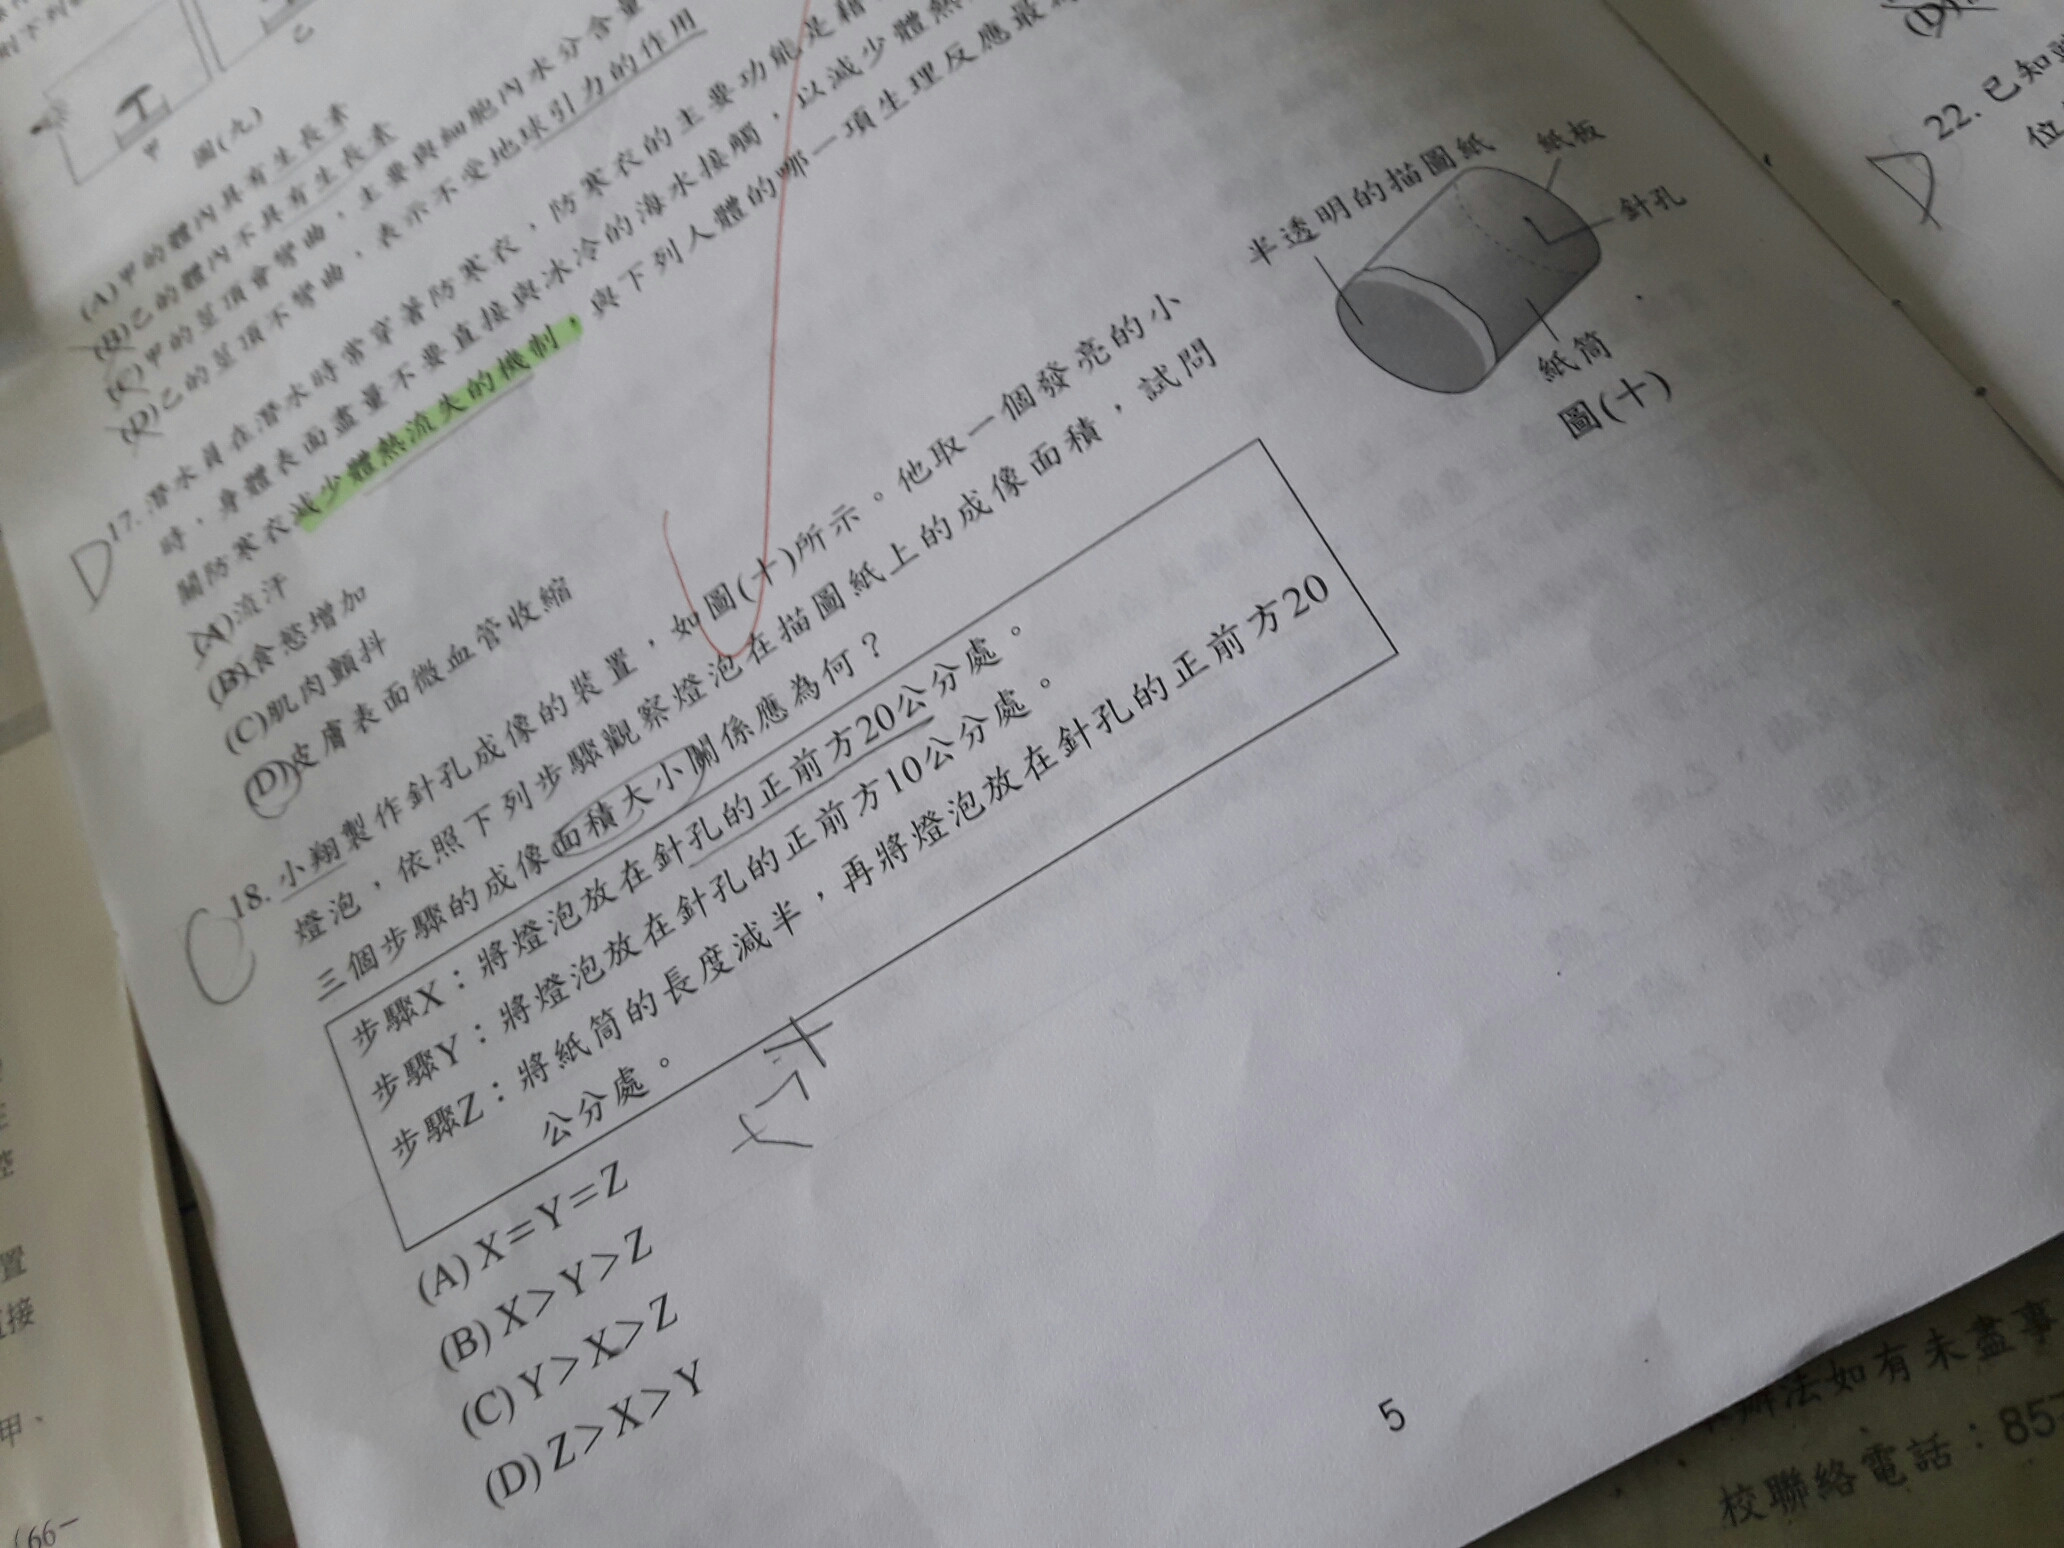 圖(九)
甲
乙
(A)甲的體內具有生長素
(B)乙的體內不具有生長素
(C)甲的莖頂會彎曲，主要與細胞內水分含量
(D)乙的莖頂不彎曲，表示不受地球引力的作用
D
17. 潛水員在潛水時常穿著防寒衣，防寒衣的主要功能是藉
時，身體表面盡量不要直接與冰冷的海水接觸，以減少體熱
關防寒衣減少體熱流失的機制，與下列人體的哪一項生理反應最
(A)流汗
(B)食慾增加
(C)肌肉顫抖
(D)皮膚表面微血管收縮
C
18. 小翔製作針孔成像的裝置，如圖(十)所示。他取一個發亮的小
燈泡，依照下列步驟觀察燈泡在描圖紙上的成像面積，試問
三個步驟的成像面積大小關係應為何？
半透明的描圖紙
紙板
針孔
紙筒
圖(十)
步驟X：將燈泡放在針孔的正前方20公分處。
步驟Y：將燈泡放在針孔的正前方10公分處。
步驟Z：將紙筒的長度減半，再將燈泡放在針孔的正前方20
公分處。
(A) X=Y=Z
(B) X>Y>Z
(C) Y>X>Z
(D) Z>X>Y
5
22. 已知
位
D
(D)
置
直接
甲、
(66-
辦法如有未盡事
校聯絡電話：857